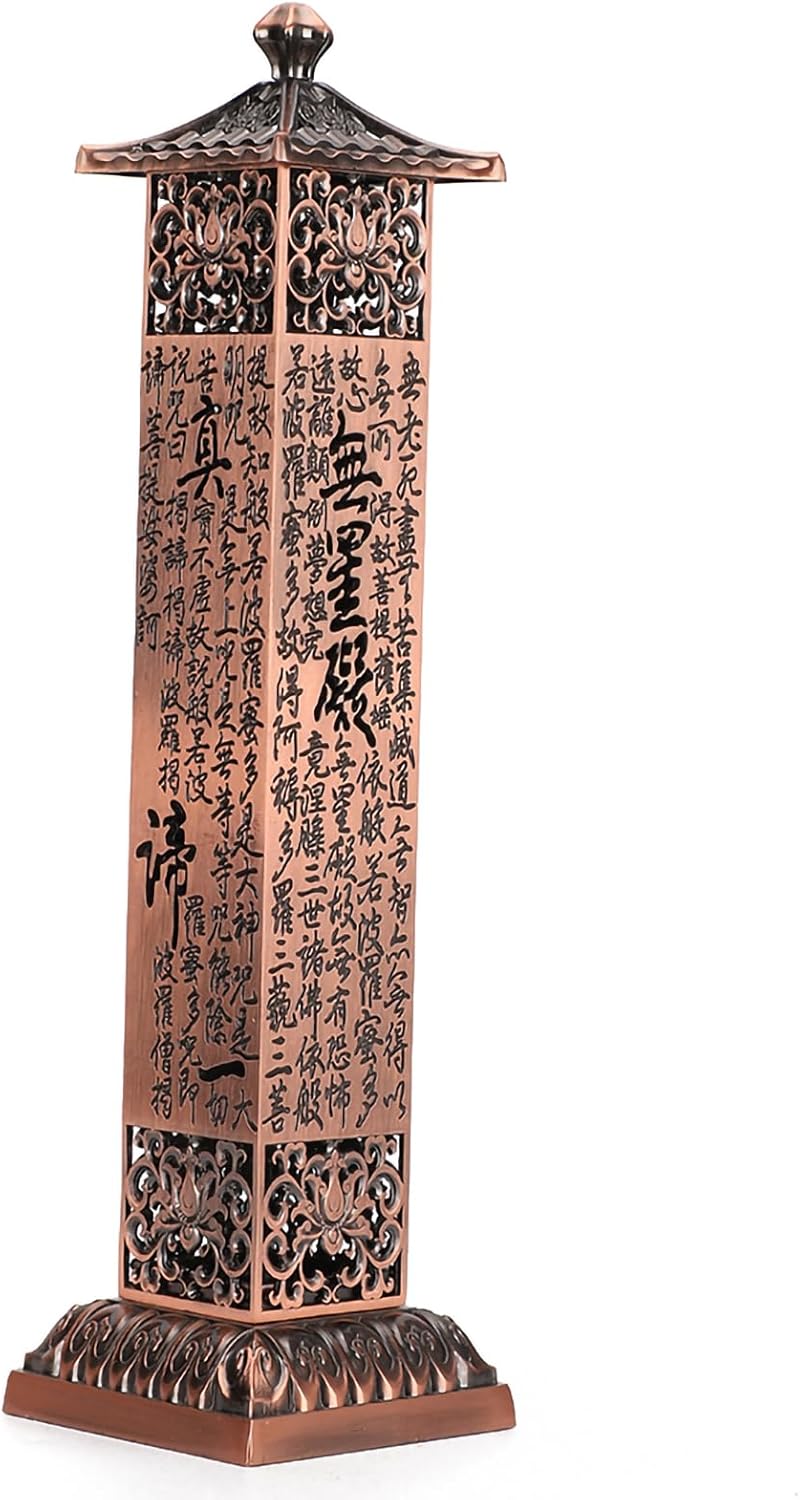 無老死盡無苦集滅道無智亦無得以
無所得故菩提薩埵依般若波羅蜜多
故心無罣礙無罣礙故無有恐怖
遠離顛倒夢想究竟涅槃三世諸佛依般
若波羅蜜多故得阿耨多羅三藐三菩
提故知般若波羅蜜多是大神咒是大
明咒是無上咒是無等等咒能除一切
苦真實不虛故說般若波羅蜜多咒即
說咒曰揭諦揭諦波羅揭諦波羅僧揭
諦菩提娑婆訶